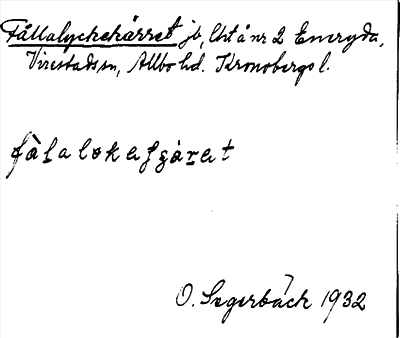 Fållalyckekärret jb, Urt å nr 2 Emeryda,
Virestads sn, Allbo hd. Kronobergs l.
fålalokafgäret
O. Segerbäck 1932